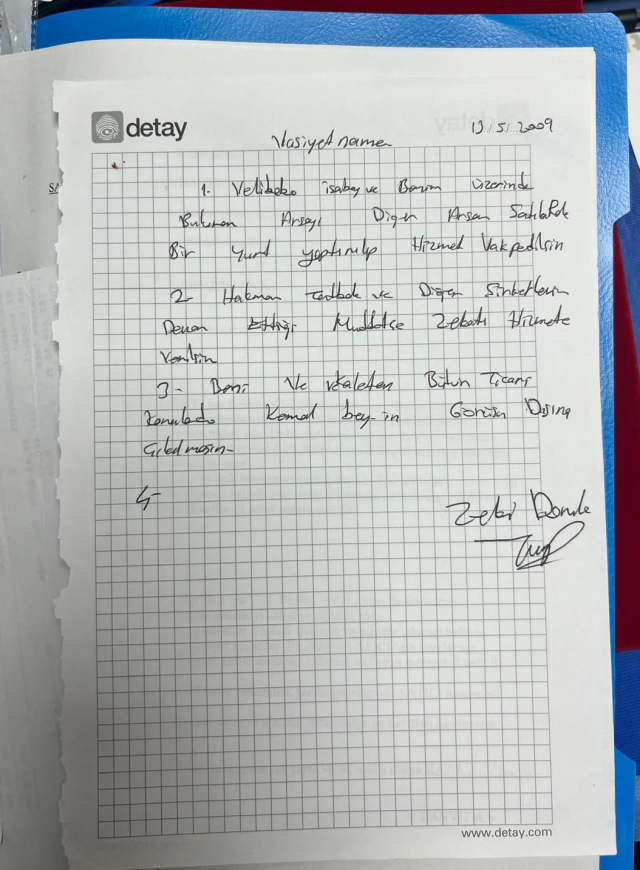 detay
13.5.2009
Vasiyetname
1. Velibaba isabey ve Benim üzerinde
Bulunan Arsayı Diğer Arsam Satılarak
Bir yurt yaptırılıp Hizmet Vakfedilsin
2 Hakman ve Diğer Şirketlerin
Devam Ettiği Müddetçe Zekatı Hizmete
Verilsin
3- Beni Ve vekaleten Bütün Ticari
Konularda Kemal bey-in Görüşü Dışına
Çıkılmasın-
4-
Zeki
www.detay.com